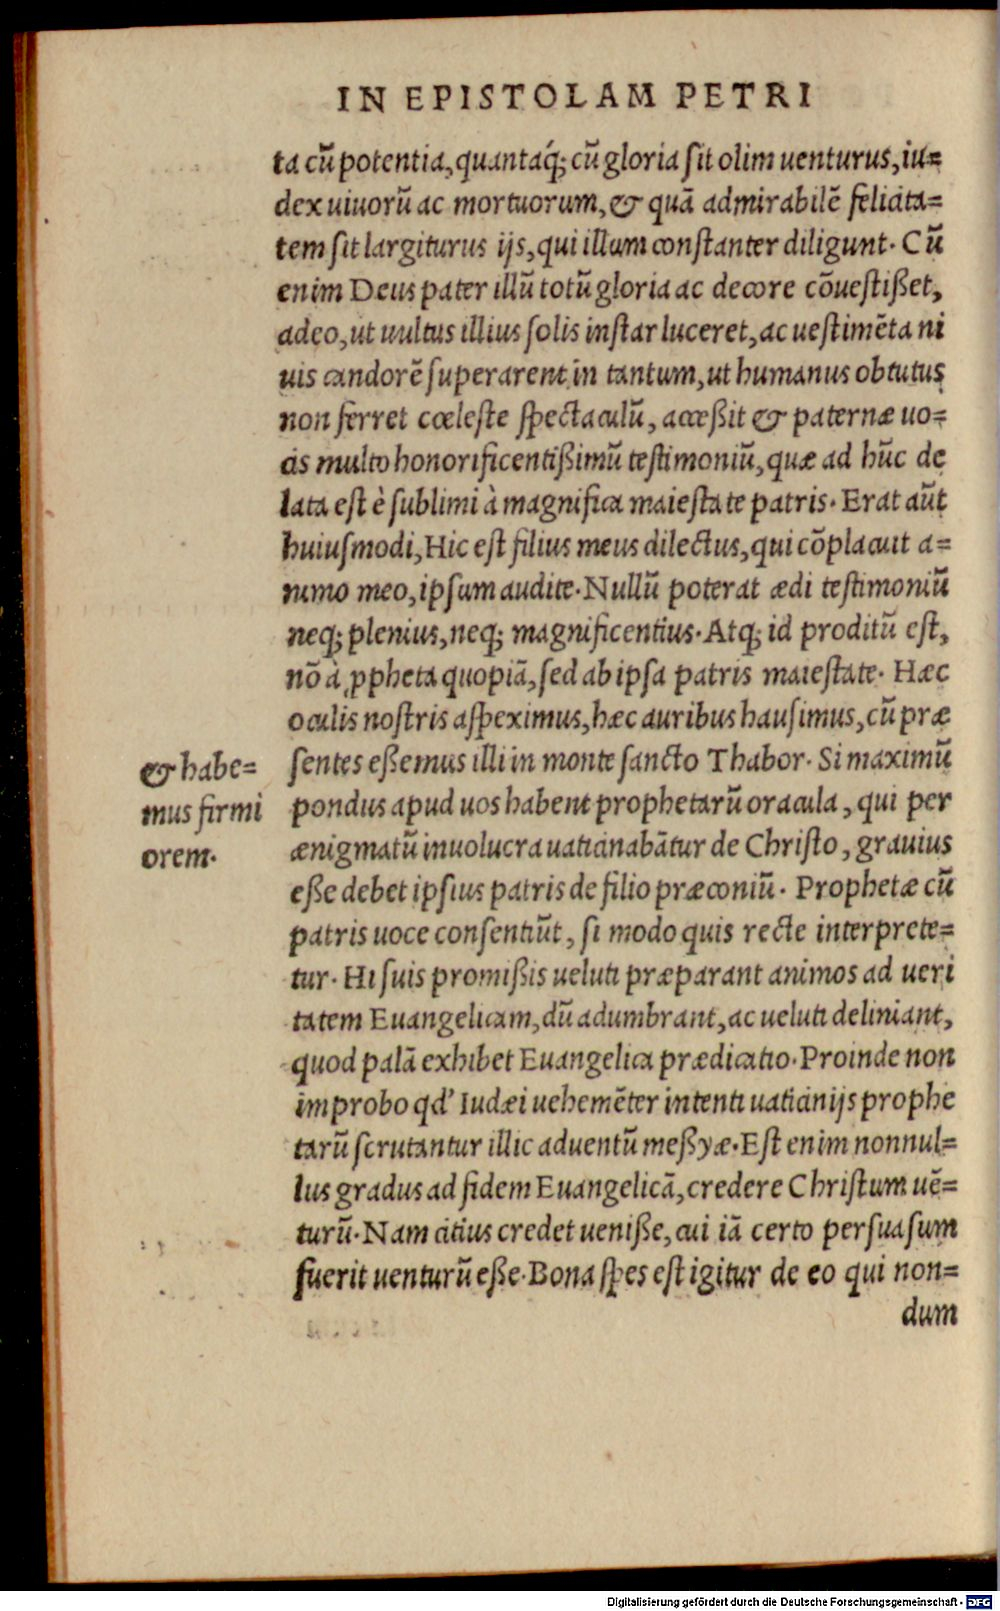 IN EPISTOLAM PETRI
ta cũ potentia, quantaq́; cũ gloria ſit olim uenturus, iu=
dex uiuorũ ac mortuorum, & quã admirabilẽ felicita=
tem ſit largiturus ijs, qui illum conſtanter diligunt. Cũ
enim Deus pater illũ totũ gloria ac decore cõueſtißet,
adeo, ut uultus illius ſolis inſtar luceret, ac ueſtimẽta ni
uis candorẽ ſuperarent in tantum, ut humanus obtutus
non ferret cœleſte ſpectaculũ, acceßit & paternæ uo=
cis multo honorificentißimũ teſtimoniũ, quæ ad hũc de
lata eſt è ſublimi à magnifica maieſtate patris. Erat aũt
huiuſmodi, Hic eſt filius meus dilectus, qui cõplacuit a=
nimo meo, ipſum audite. Nullũ poterat ædi teſtimoniũ
neq; plenius, neq; magnificentius. Atq; id proditũ eſt,
nõ à ꝓpheta quopiã, ſed ab ipſa patris maieſtate. Hæc
oculis noſtris aſpeximus, hæc auribus hauſimus, cũ præ
ſentes eßemus illi in monte ſancto Thabor. Si maximũ
pondus apud uos habent prophetarũ oracula, qui per
ænigmatũ inuolucra uaticinabãtur de Chriſto, grauius
eße debet ipſius patris de filio præconiũ. Prophetæ cũ
patris uoce conſentiũt, ſi modo quis recte interprete=
tur. Hi ſuis promißis ueluti præparant animos ad ueri
tatem Euangelicam, dũ adumbrant, ac ueluti deliniant,
quod palã exhibet Euangelica prædicatio. Proinde non
improbo qd' Iudæi uehemẽter intenti uaticinijs prophe
tarũ ſcrutantur illic aduentũ meßyæ. Eſt enim nonnul=
lus gradus ad fidem Euangelicã, credere Chriſtum uẽ=
turũ. Nam citius credet ueniße, cui iã certo perſuaſum
fuerit uenturũ eße. Bona ſpes eſt igitur de eo qui non=
dum
& habe=
mus firmi
orem.
Digitalisierung gefördert durch die Deutsche Forschungsgemeinschaft - DFG